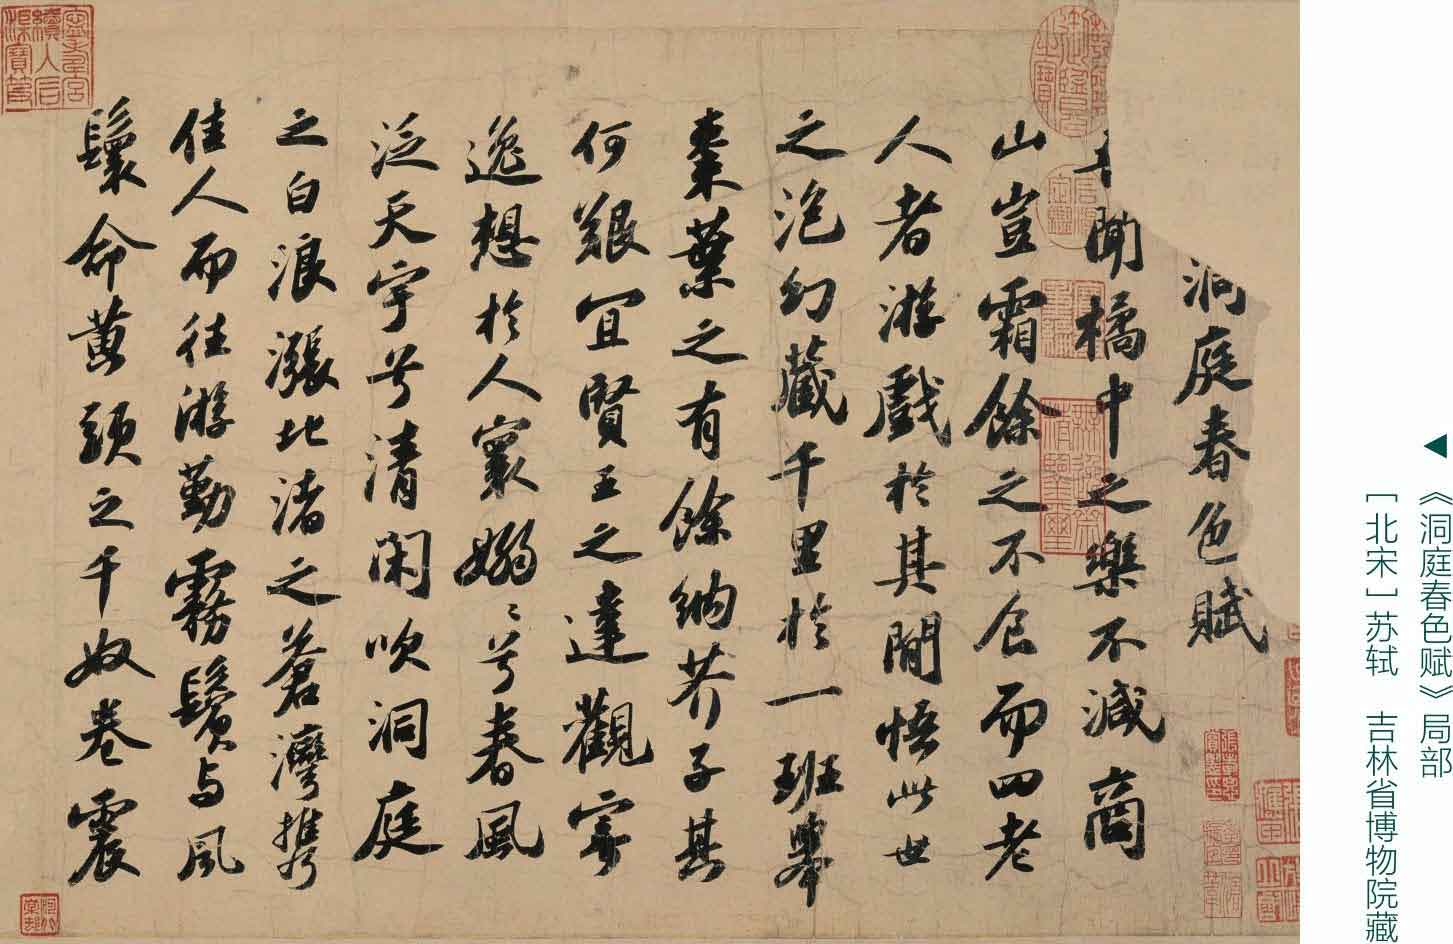 《洞庭春色赋》局部
[北宋] 苏轼 吉林省博物院藏
洞庭春色賦
聞橘中之樂不減商
山豈霜餘之不食而四老
人者游戲於其間悟此世
之泡幻藏千里於一班舉
棗葉之有餘納芥子其
何艱宜賢王之達觀寄
逸想於人寰嫋〻兮春風
泛天宇兮清閑吹洞庭
之白浪漲北渚之蒼灣攜
佳人而往游勤霧鬢与風
鬟命黄頭之千奴卷震
寧壽宮
續入石
渠寶笈